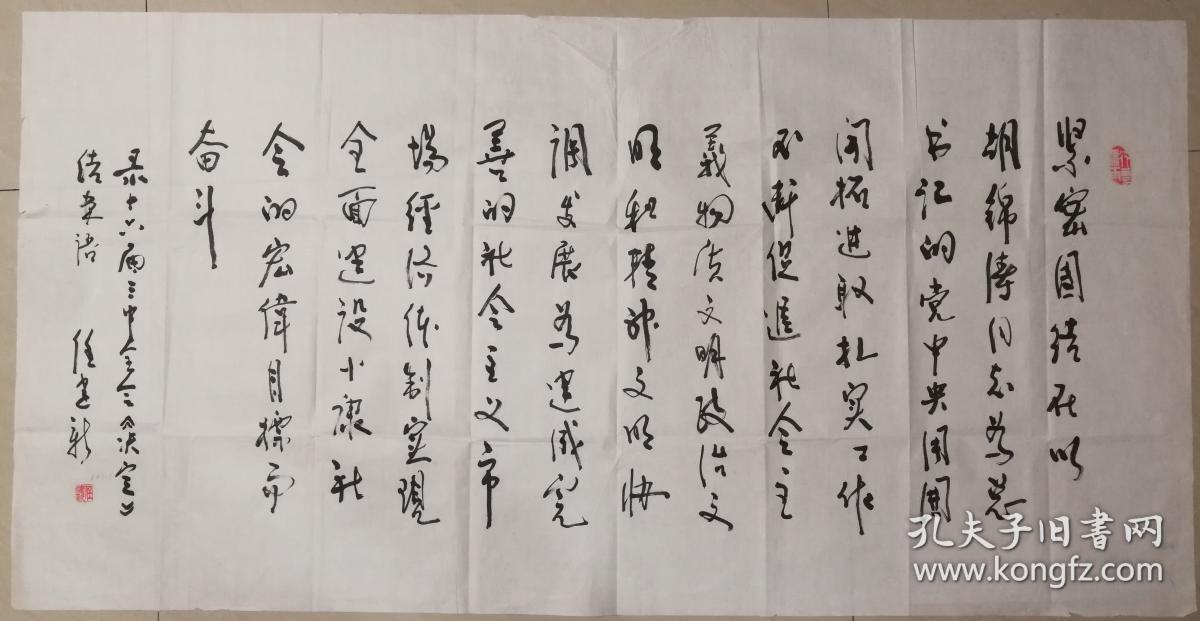 紧密团结在以
胡锦涛同志为总
书记的党中央周围
开拓进取扎实工作
不断促進社会主
義物质文明政治文
明和精神文明协
调发展为建成完
善的社会主义市
場經济体制实現
全面建设小康社
会的宏偉目标而
奋斗
录十六届三中全会《决定》
结束语 任建新
孔夫子旧書网
www.kongfz.com